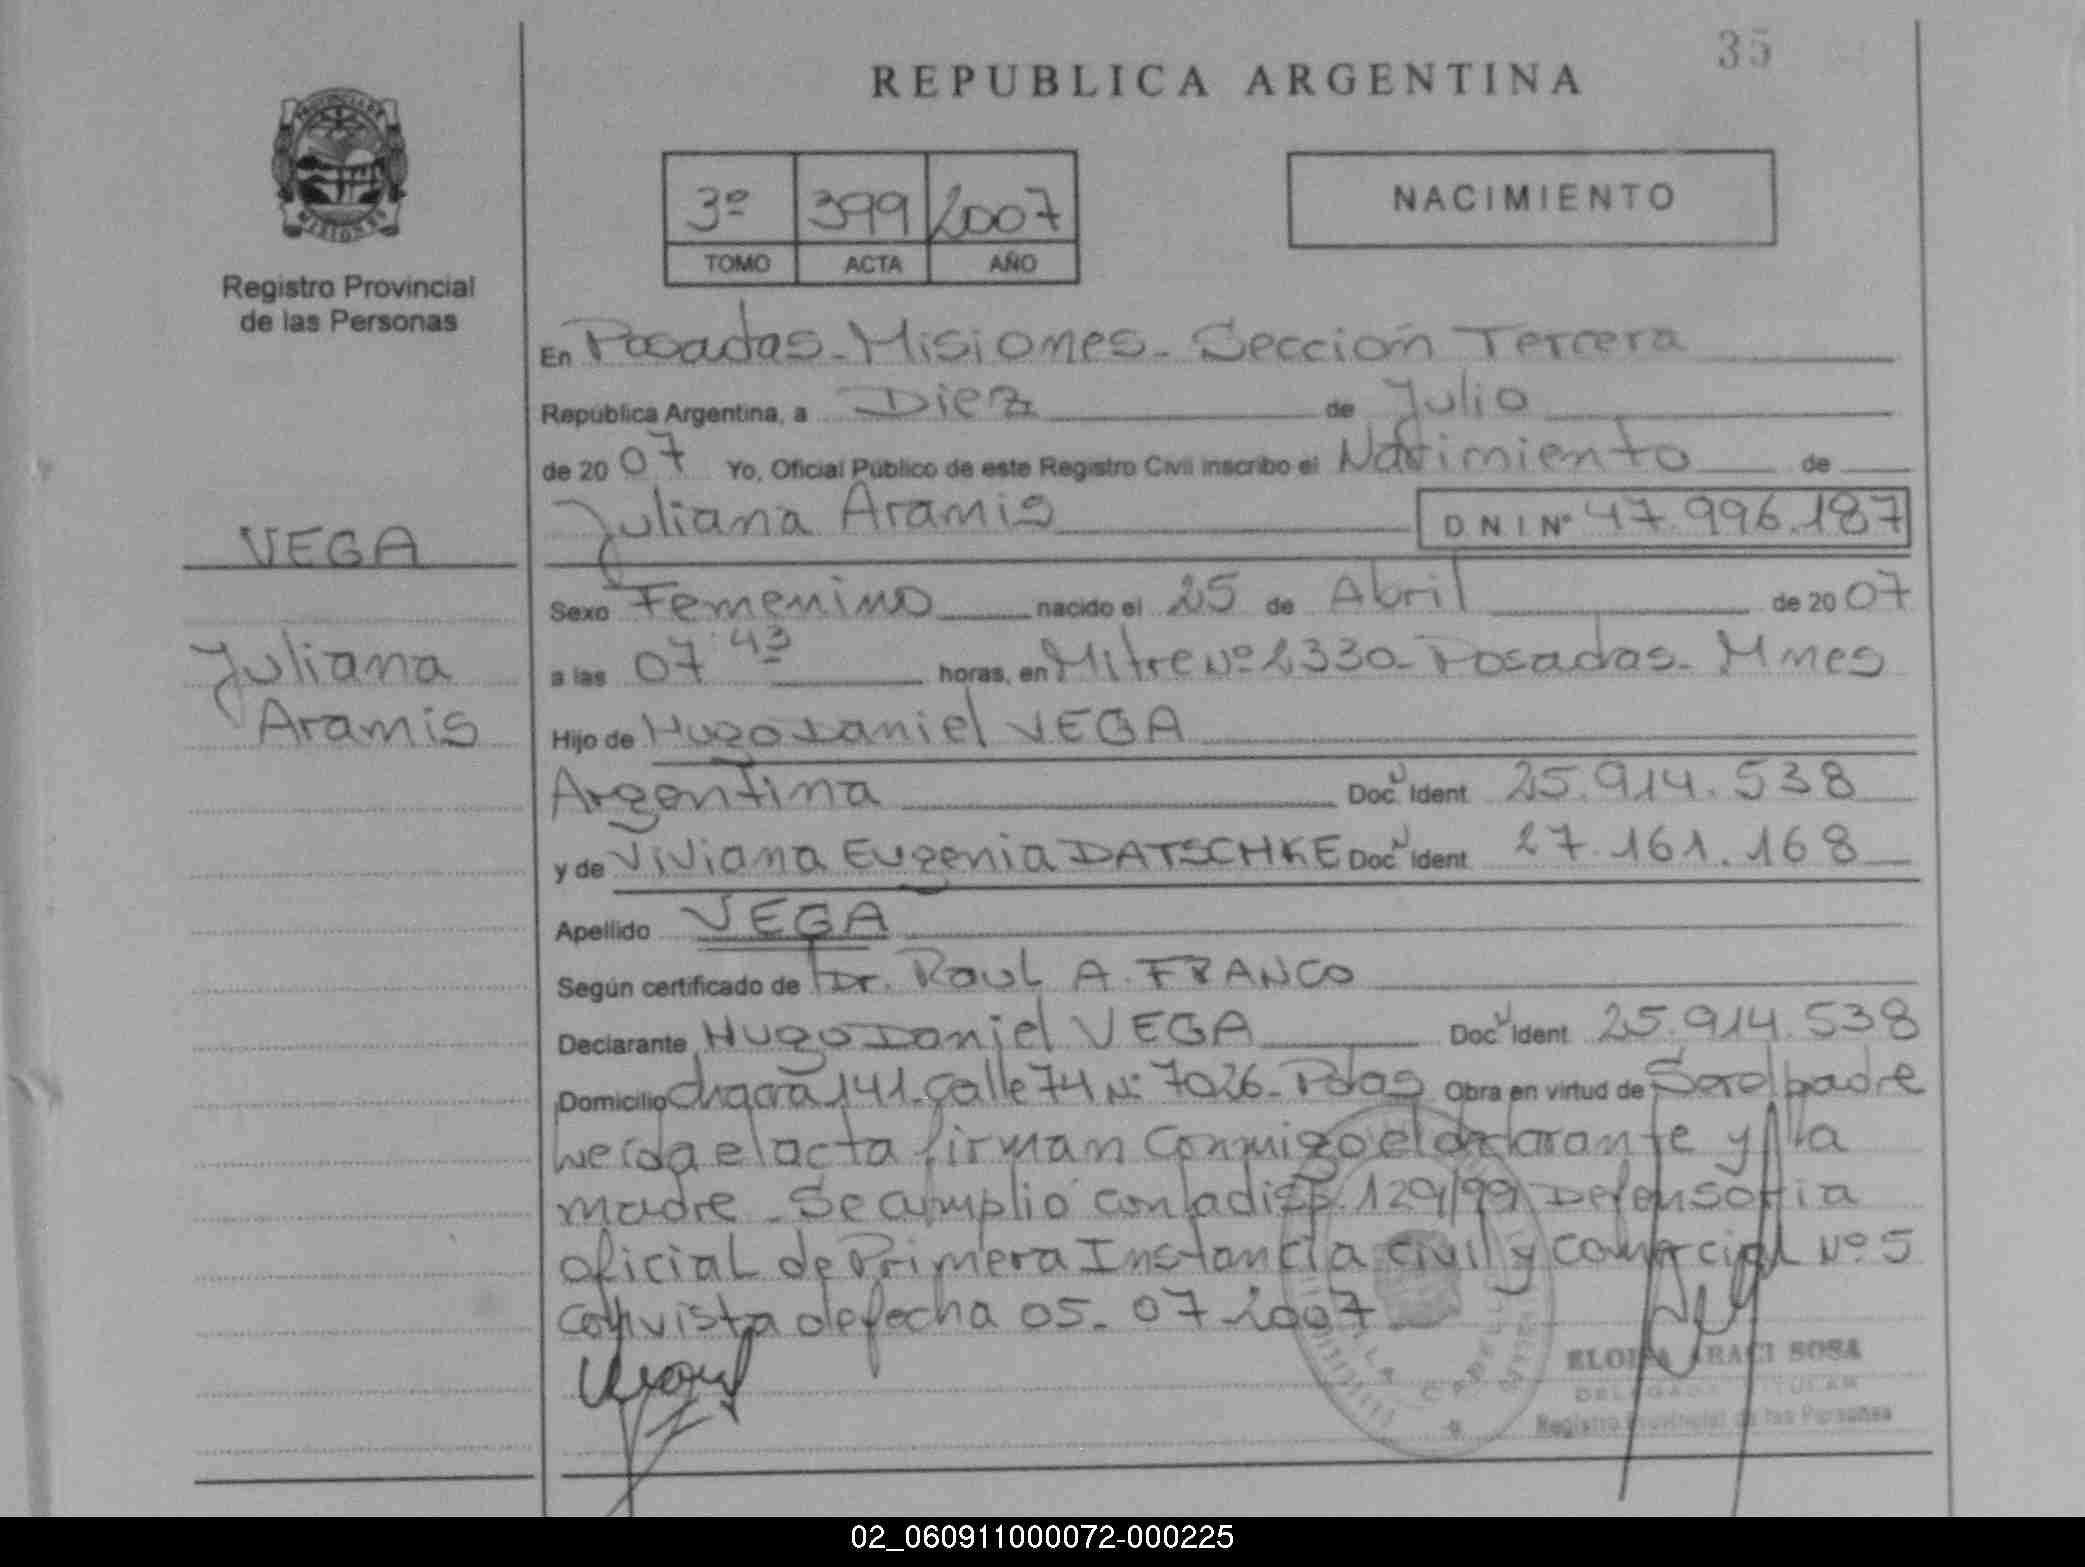 35
REPUBLICA ARGENTINA
3º 399 2007
TOMO ACTA AÑO
NACIMIENTO
Registro Provincial
de las Personas
En Posadas - Misiones - Sección Tercera
República Argentina, a Diez de Julio
de 2007 Yo, Oficial Público de este Registro Civil inscribo el Nacimiento de
Juliana Aramis DNI Nº 47.996.187
VEGA
Juliana
Aramis
Sexo Femenino nacido el 25 de Abril de 2007
a las 07 43 horas, en Mitre Nº 2330 - Posadas - Mnes
Hijo de Hugo Daniel VEGA
Argentina Doc Ident 25.914.538
y de Viviana Eugenia DATSCHKE Doc Ident 27.161.168
Apellido VEGA
Según certificado de Dr. Raul A. FRANCO
Declarante Hugo Daniel VEGA Doc Ident 25.914.538
Domicilio chacra 141 - Calle 74 Nº 7026 - Pdas Obra en virtud de Ser el padre
Leída el acta firman conmigo el declarante y la
madre - Se cumplio con la disp. 129/99 Defensoria
oficial de Primera Instancia civil y comercial Nº 5
con vista de fecha 05 - 07 - 2007
ELOISA ARACI SOSA
DELEGADA TITULAR
Registro Provincial de las Personas
02_060911000072-000225